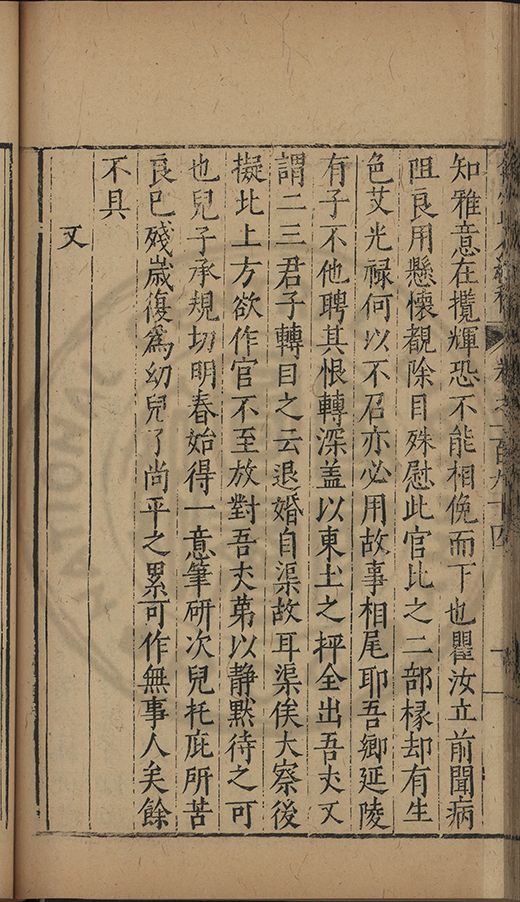 知雅意在攬輝恐不能相俛而下也瞿汝立前聞病
阻良用懸懷覩除目殊慰此官比之二部椽却有生
色艾光禄何以不召亦必用故事相尾耶吾鄉延陵
有子不他聘其恨轉深盖以東土之抨全出吾丈又
謂二三君子轉目之云退婚自渠故耳渠俟大察後
擬北上方欲作官不至放對吾丈苐以静黙待之可
也兒子承規切明春始得一意筆研次兒托庇所苦
良已殘歳復爲幼兒了尚平之累可作無事人矣餘
不具
又